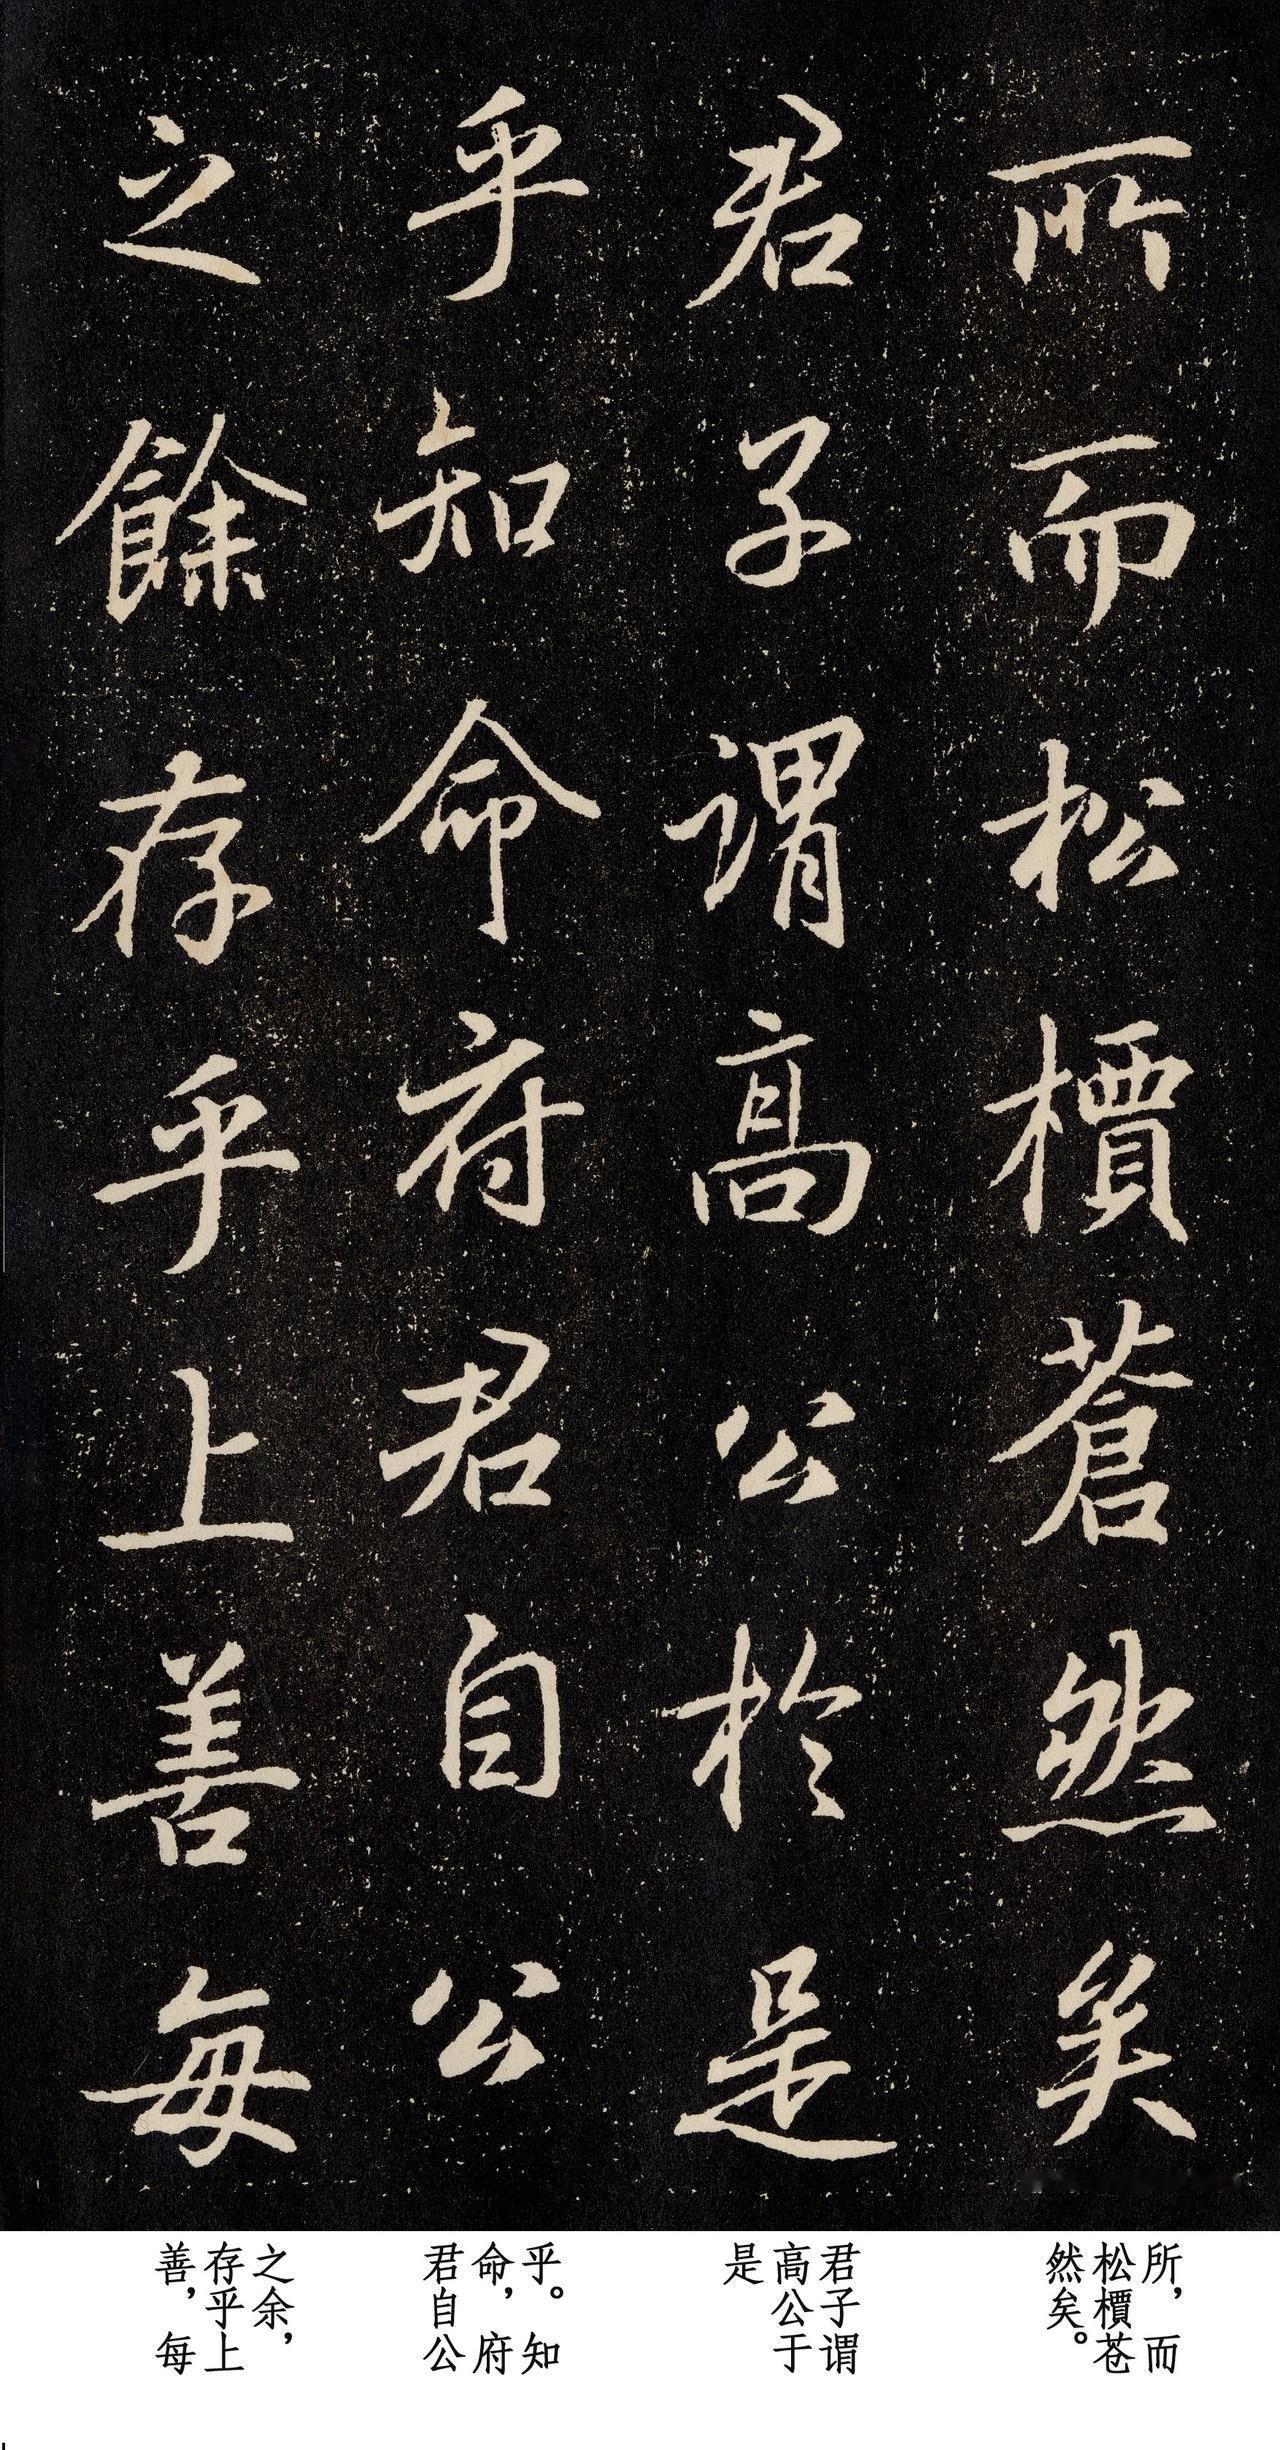 所而松檟蒼然矣
君子謂高公於是
乎知命府君自公
之餘存乎上善每
所，而
松檟苍
然矣。
君子谓
高公于
是
乎。知
命，府
君自公
之余，
存乎上
善，每